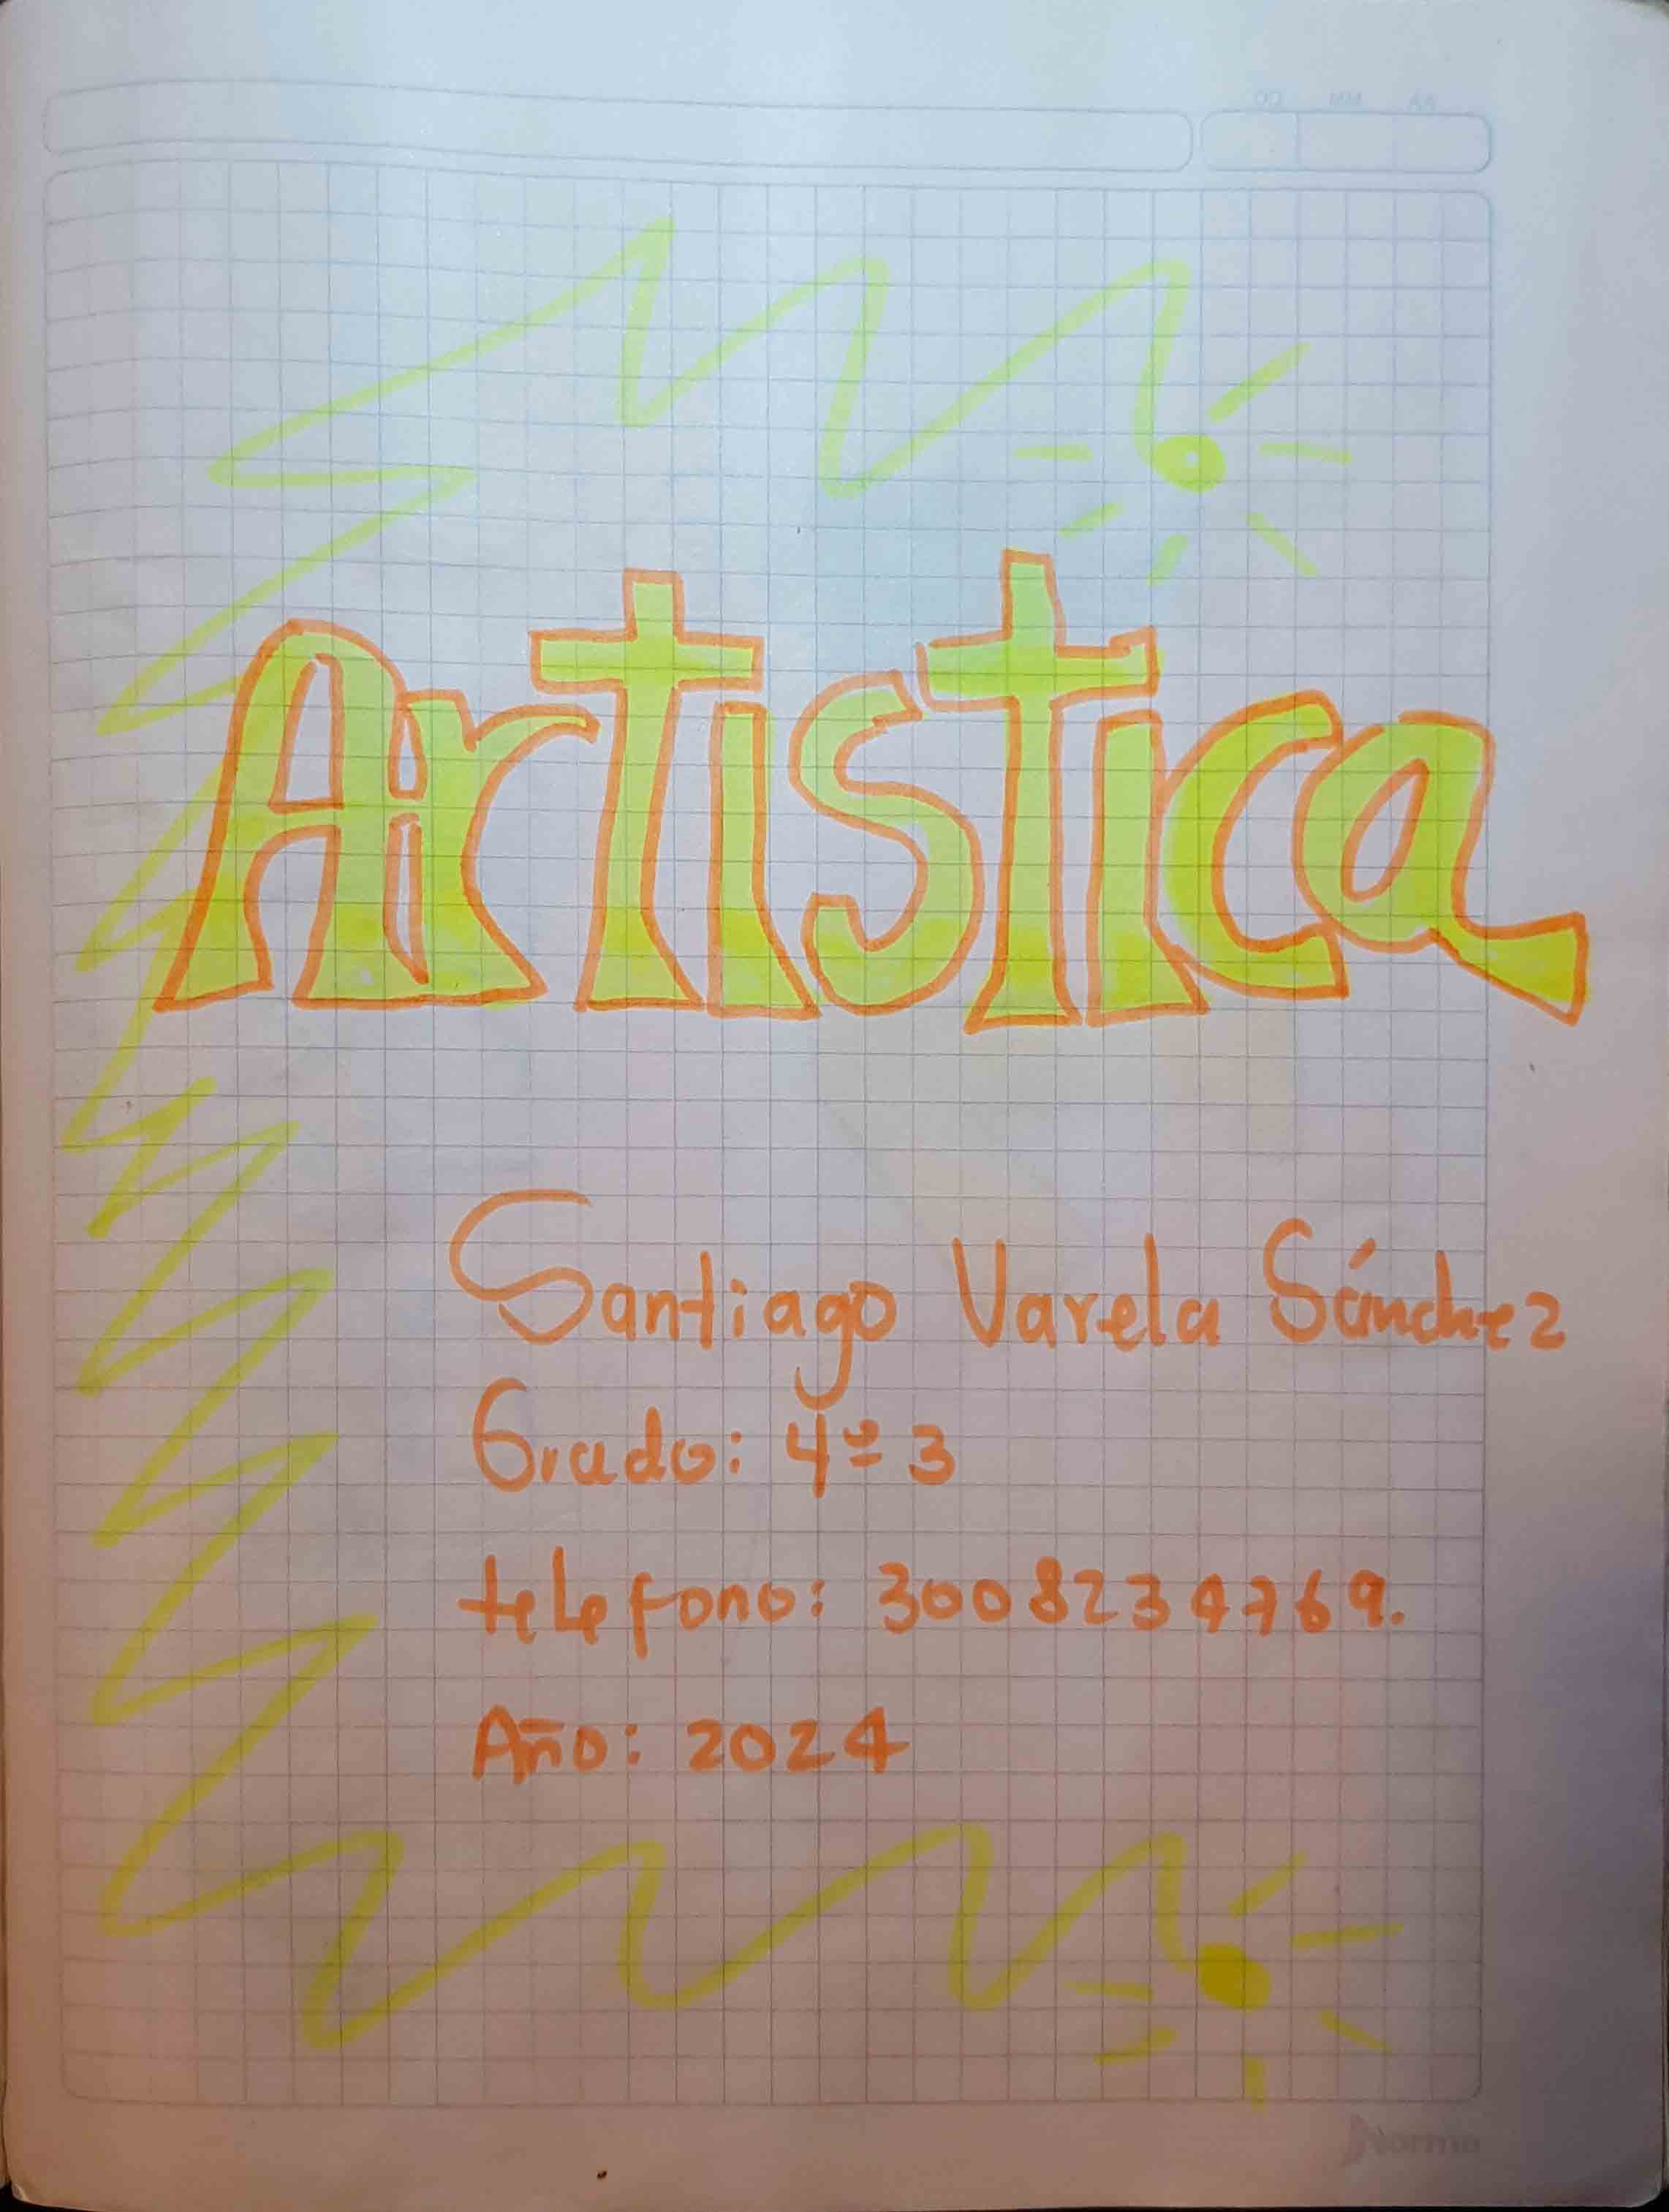 Artistica
Santiago Varela Sánchez
Grado: 4º 3
telefono: 3008234769.
Año: 2024
Norma